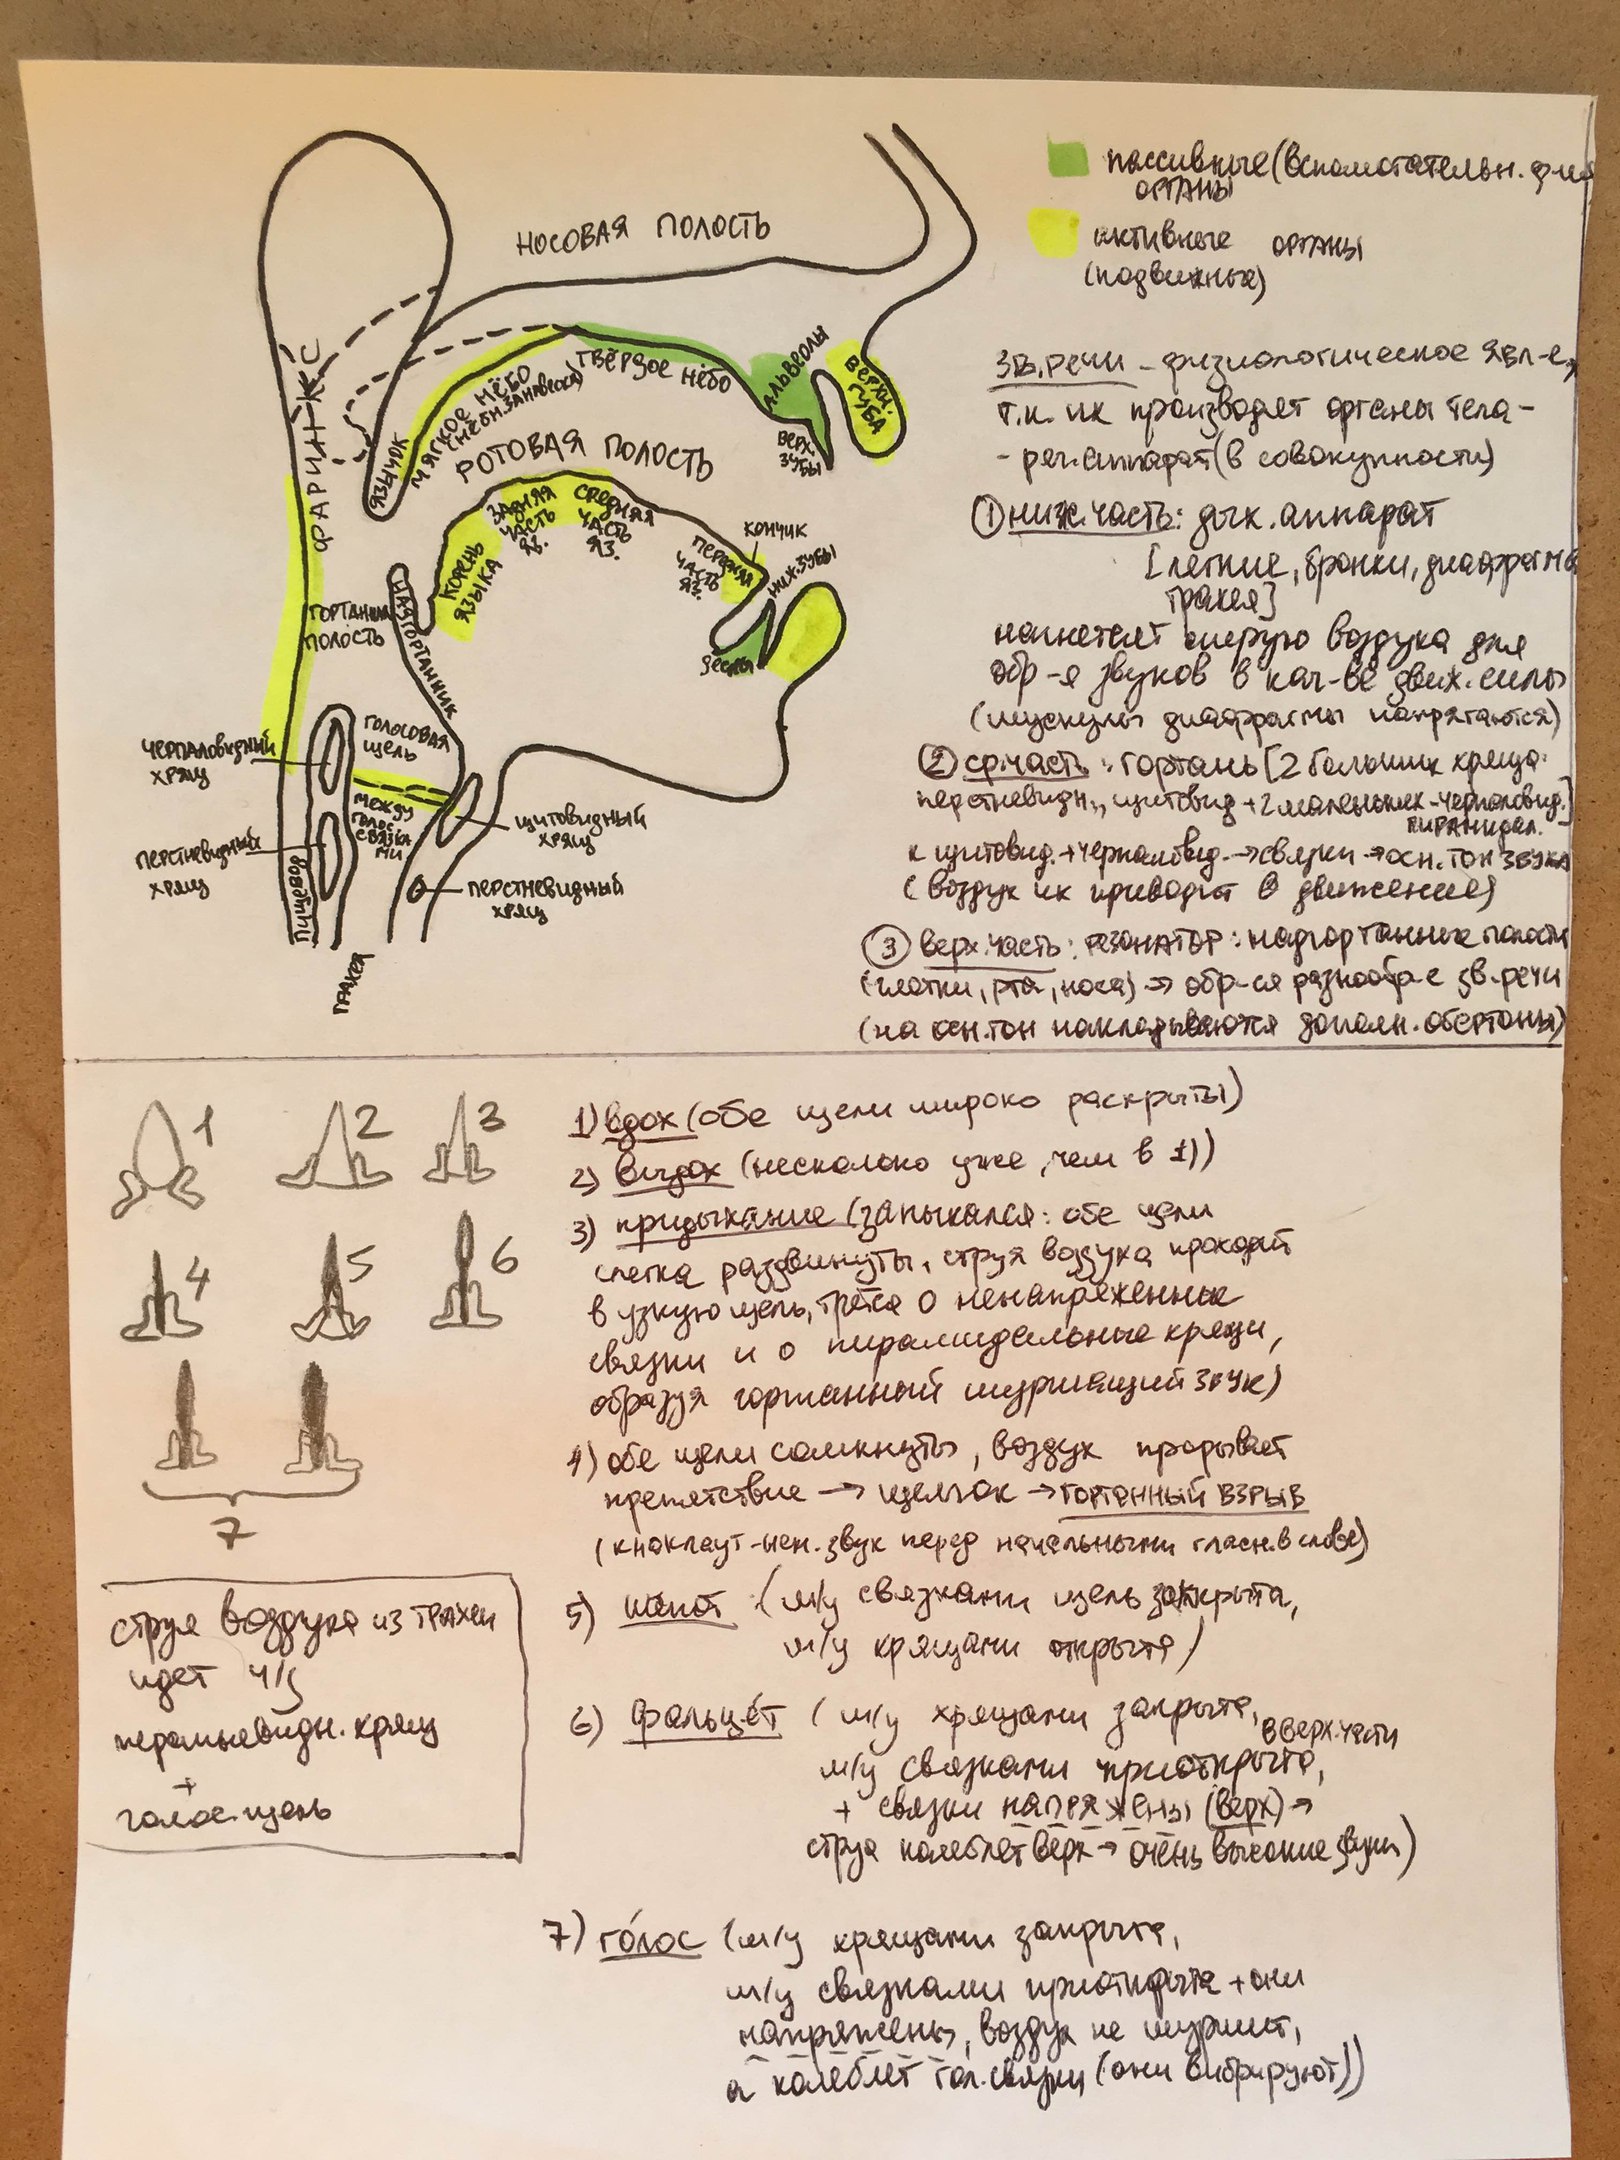 НОСОВАЯ ПОЛОСТЬ
ФАРИНКС
ЯЗЫЧОК
МЯГКОЕ НЁБО
(НЁБН. ЗАНАВЕСКА)
ТВЁРДОЕ НЁБО
АЛЬВЕОЛЫ
ВЕРХ.
ЗУБЫ
ВЕРХН.
ГУБА
РОТОВАЯ ПОЛОСТЬ
КОРЕНЬ
ЯЗЫКА
ЗАДНЯЯ
ЧАСТЬ
ЯЗ.
СРЕДНЯЯ
ЧАСТЬ
ЯЗ.
ПЕРЕДНЯЯ
ЧАСТЬ
ЯЗ.
КОНЧИК
НИЖ. ЗУБЫ
ГОРТАННАЯ
ПОЛОСТЬ
НАДГОРТАННИК
ЧЕРПАЛОВИДНЫЙ
ХРЯЩ
ГОЛОСОВАЯ
ЩЕЛЬ
МЕЖДУ
ГОЛОС.
СВЯЗКА
МИ
ЩИТОВИДНЫЙ
ХРЯЩ
ПЕРСТНЕВИДНЫЙ
ХРЯЩ
ПЕРСТНЕВИДНЫЙ
ХРЯЩ
ПИЩЕВОД
ТРАХЕЯ
пассивные (вспомогательн. ф-ия
ОРГАНЫ
активные ОРГАНЫ
(подвижные)
ЗВ. РЕЧИ - физиологическое явл-е,
т.к. их производят органы тела -
- реч. аппарат (в совокупности)
① ниж. часть: дых. аппарат
[легкие, бронхи, диафрагма
трахея]
нагнетает струю воздуха для
обр-я звуков в кач-ве движ. силы
(мускулы диафрагмы напрягаются)
② ср. часть: гортань [2 больших хряща:
перстневидн., щитовид + 2 маленьких - черпаловид.]
ПИРАМИДАЛ.
к щитовид. + черпаловид. → связки → осн. тон ЗВУКА
(воздух их приводит в движение)
③ верх. часть: РЕЗОНАТОР: надгортанные полости
(глотки, рта, носа) → обр-ся разнообр-е зв. речи
(на осн. тон накладываются дополн. обертоны)
1
2
3
4
5
6
7
1) вдох (обе щели широко раскрыты)
2) выдох (несколько уже, чем в 1))
3) придыхание (запыхался: обе щели
слегка раздвинуты, струя воздуха проходит
в узкую щель, трётся о ненапряженные
связки и о пирамидальные хрящи,
образуя гортанный шуршащий ЗВУК)
4) обе щели сомкнуты, воздух прорывает
препятствие → щелчок → ГОРТАННЫЙ ВЗРЫВ
(кнаклаут - нем. звук перед начальными гласн. в слове)
5) шёпот (м/у связками щель закрыта,
м/у хрящами открыта)
6) фальцет (м/у хрящами закрыта,
В ВЕРХ. ЧАСТИ
м/у связками приоткрыта,
+ связки напряжены (верх) →
струя колеблет верх → очень высокие звуки)
7) го́лос (м/у хрящами закрыта,
м/у связками приоткрыта + они
напряжены, воздух не шуршит,
а колеблет гол. связки (они вибрируют))
струя воздуха из ТРАХЕИ
идет ч/з
+
голос. щель